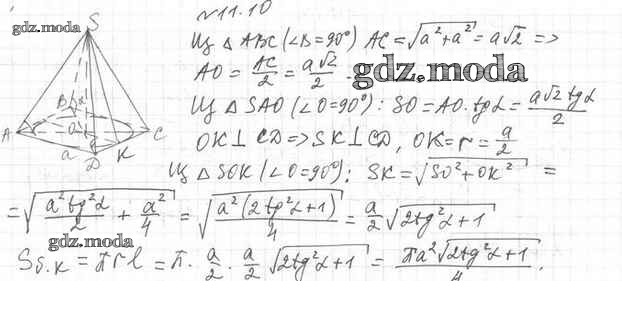 №11.10
gdz.moda
S
Из △ ABC (∠B=90°) AC = √(a²+a²) = a√2 =>
AO = AC/2 = a√2/2 .
gdz.moda
Из △ SAO (∠O=90°): SO = AO·tgα = a√2 tgα/2
B
A
O
C
a
D
K
OK⊥CD => SK⊥CD, OK = r = a/2
Из △ SOK (∠O=90°): SK = √(SO²+OK²) =
= √(a²tg²α/2 + a²/4) = √(a²(2tg²α+1)/4) = a/2 √(2tg²α+1)
gdz.moda
Sб.к = πrl = π· a/2 · a/2 √(2tg²α+1) = πa²√(2tg²α+1)/4 .